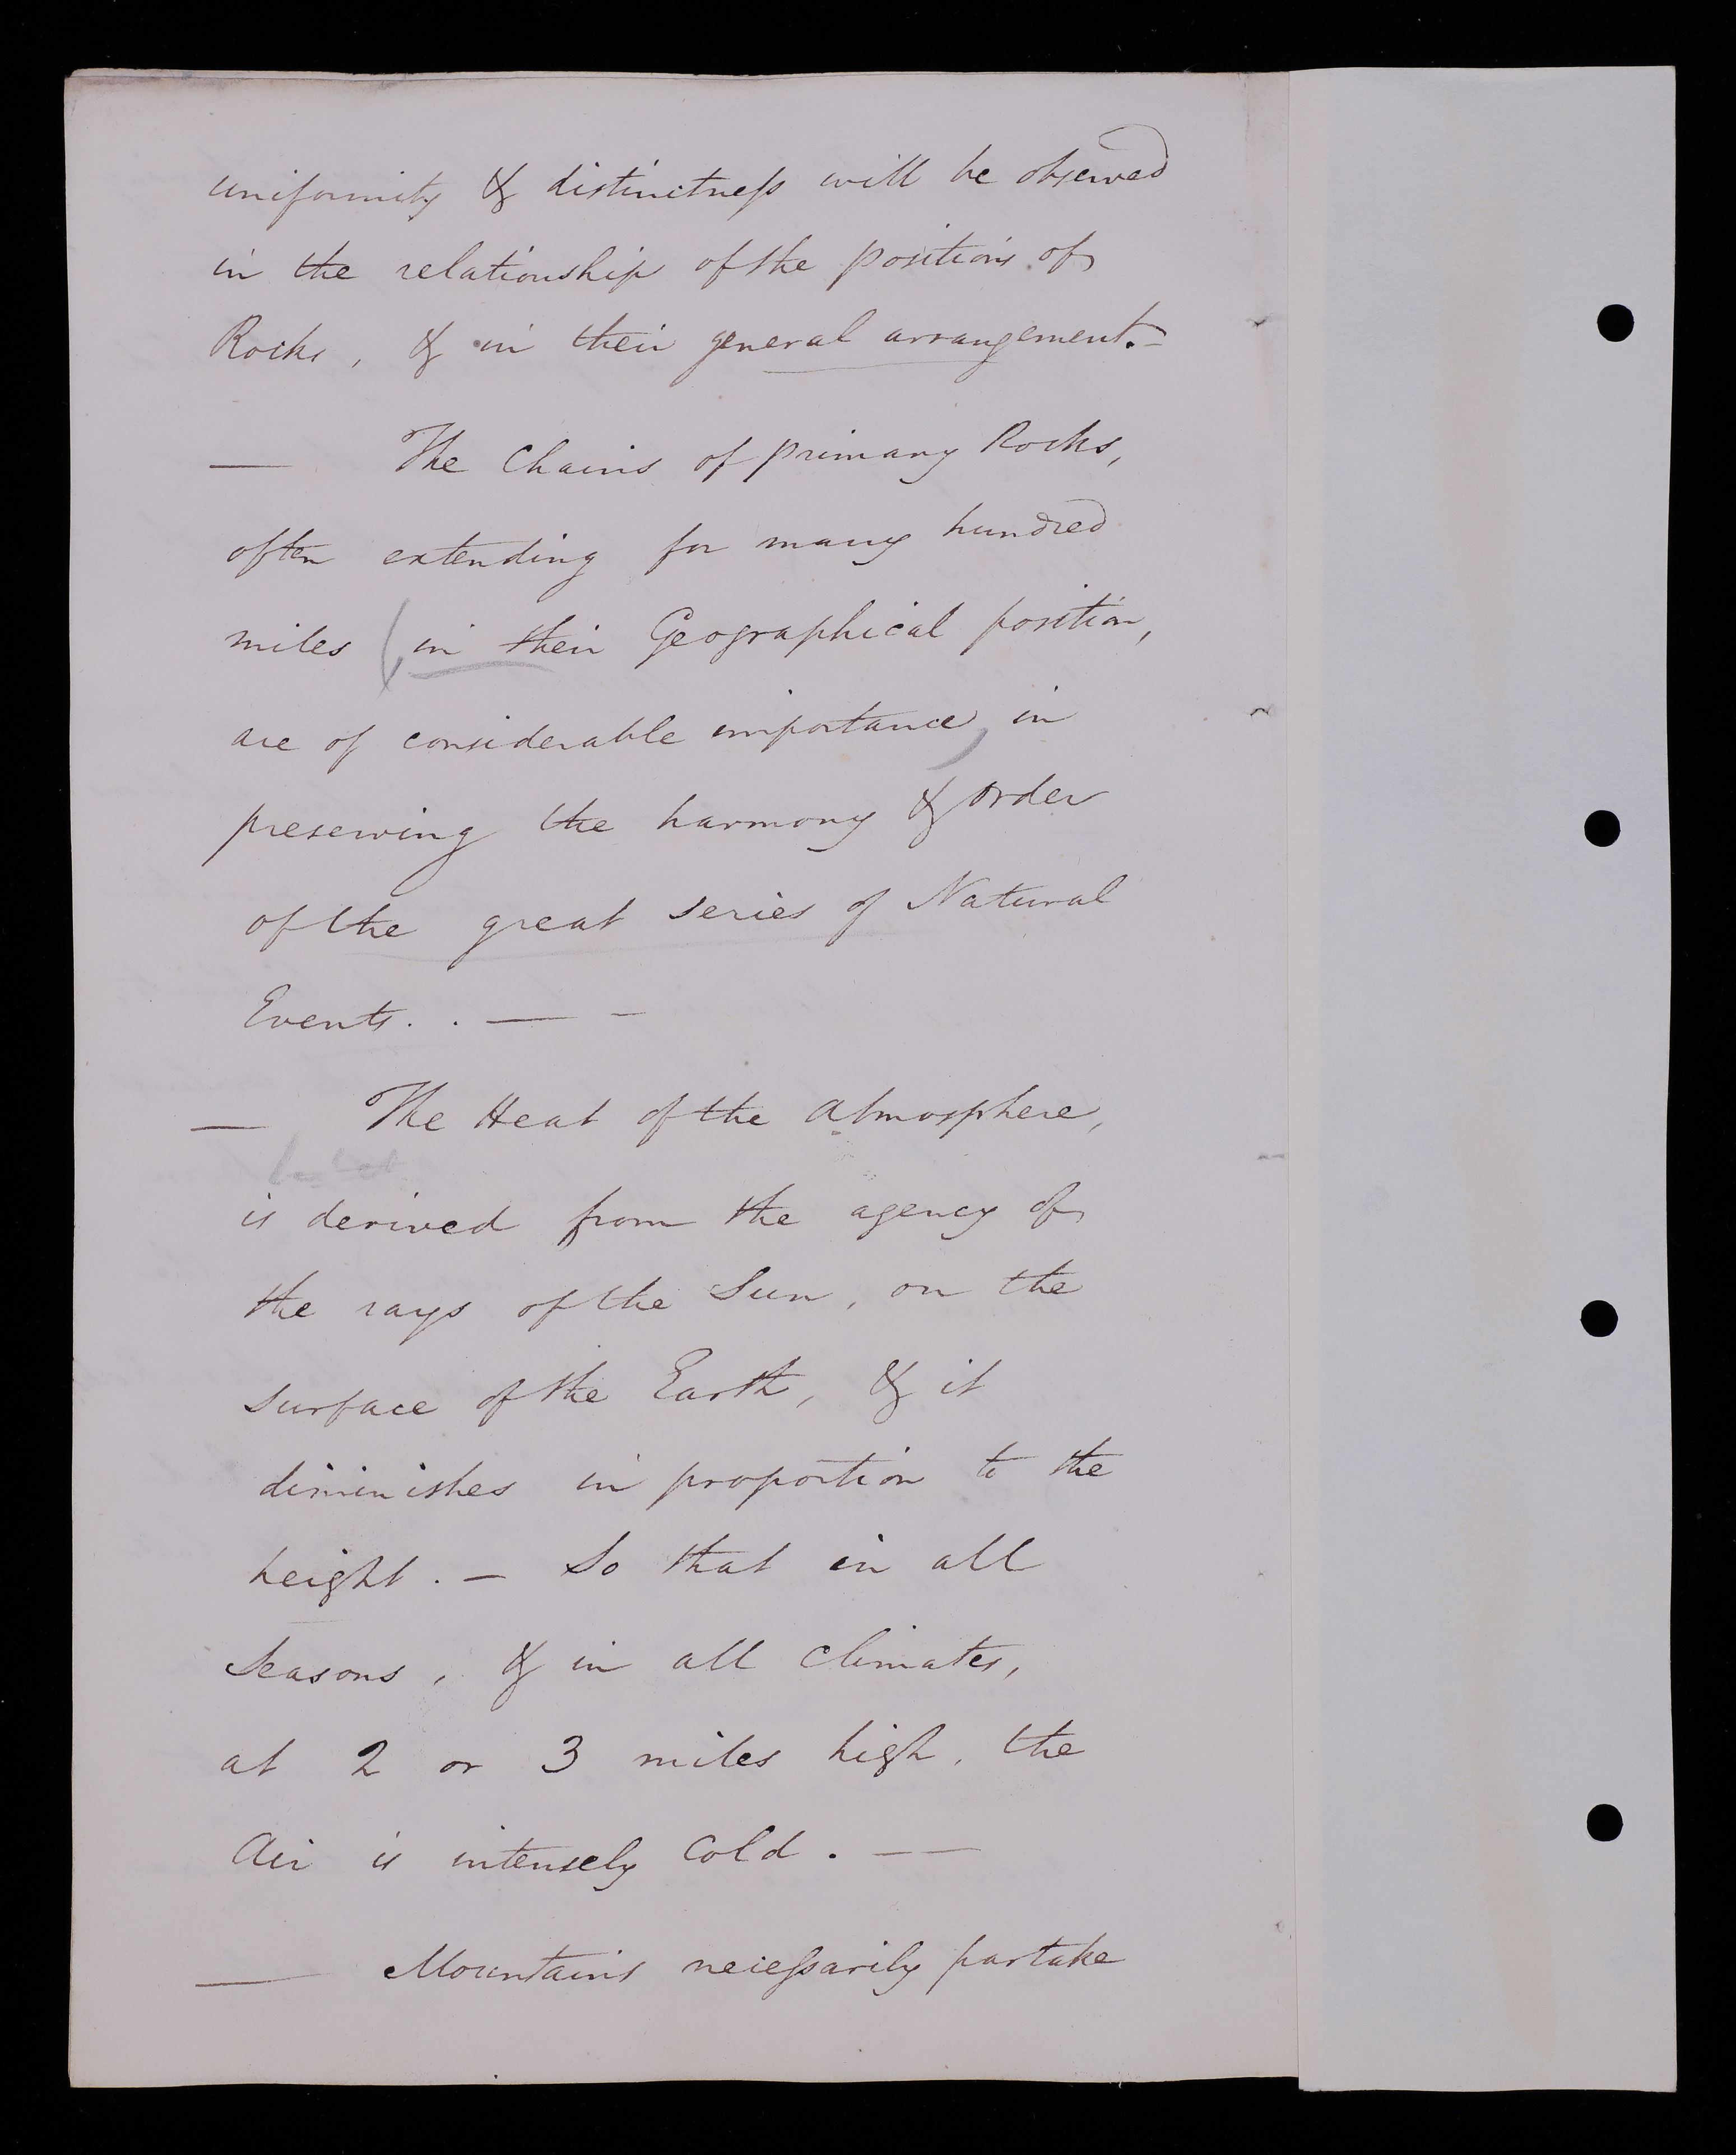 uniformity & distinctness will be observed
in the relationship of the positions of
Rocks, & in their general arrangement.-
— The Chains of primary Rocks,
often extending for many hundred
miles (in their Geographical position,
are of considerable importance, in
preserving the harmony & order
of the great series of Natural
Events. . — -
— The Heat of the Atmosphere,
is derived from the agency of
the rays of the Sun, on the
surface of the Earth, & it
diminishes in proportion to the
height. — So that in all
Seasons, & in all Climates,
at 2 or 3 miles high, the
Air is intensely Cold. — —
— Mountains necessarily partake